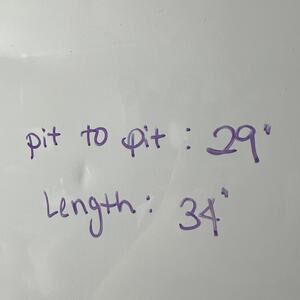 pit to pit : 29"
Length : 34"